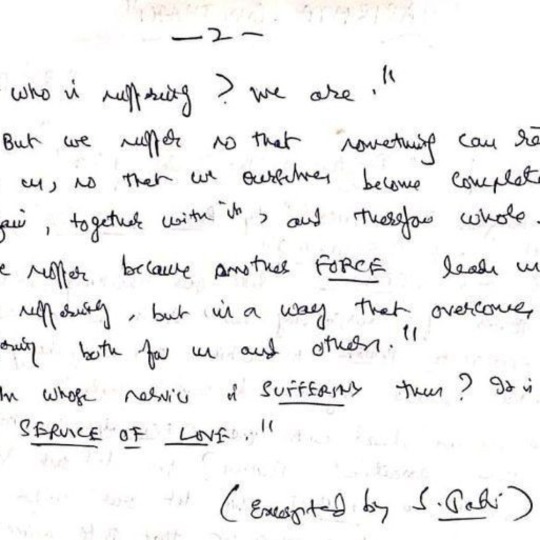 — 2 —
who is suffering? we are."
But we suffer so that something can re
us, so that we ourselves become complete
gain, together with it, and therefore whole.
e suffer because another FORCE leads us
suffering, but in a way that overcomes
ering both for us and others."
In whose service is SUFFERING then? It is
SERVICE OF LOVE."
(Excerpted by S.